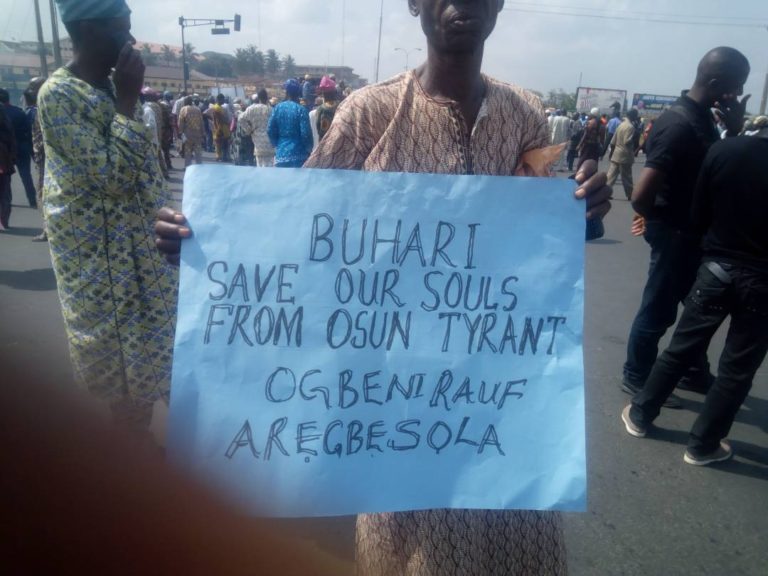 BUHARI
SAVE OUR SOULS
FROM OSUN TYRANT
OGBENI RAUF
ARẸGBẸSỌLA